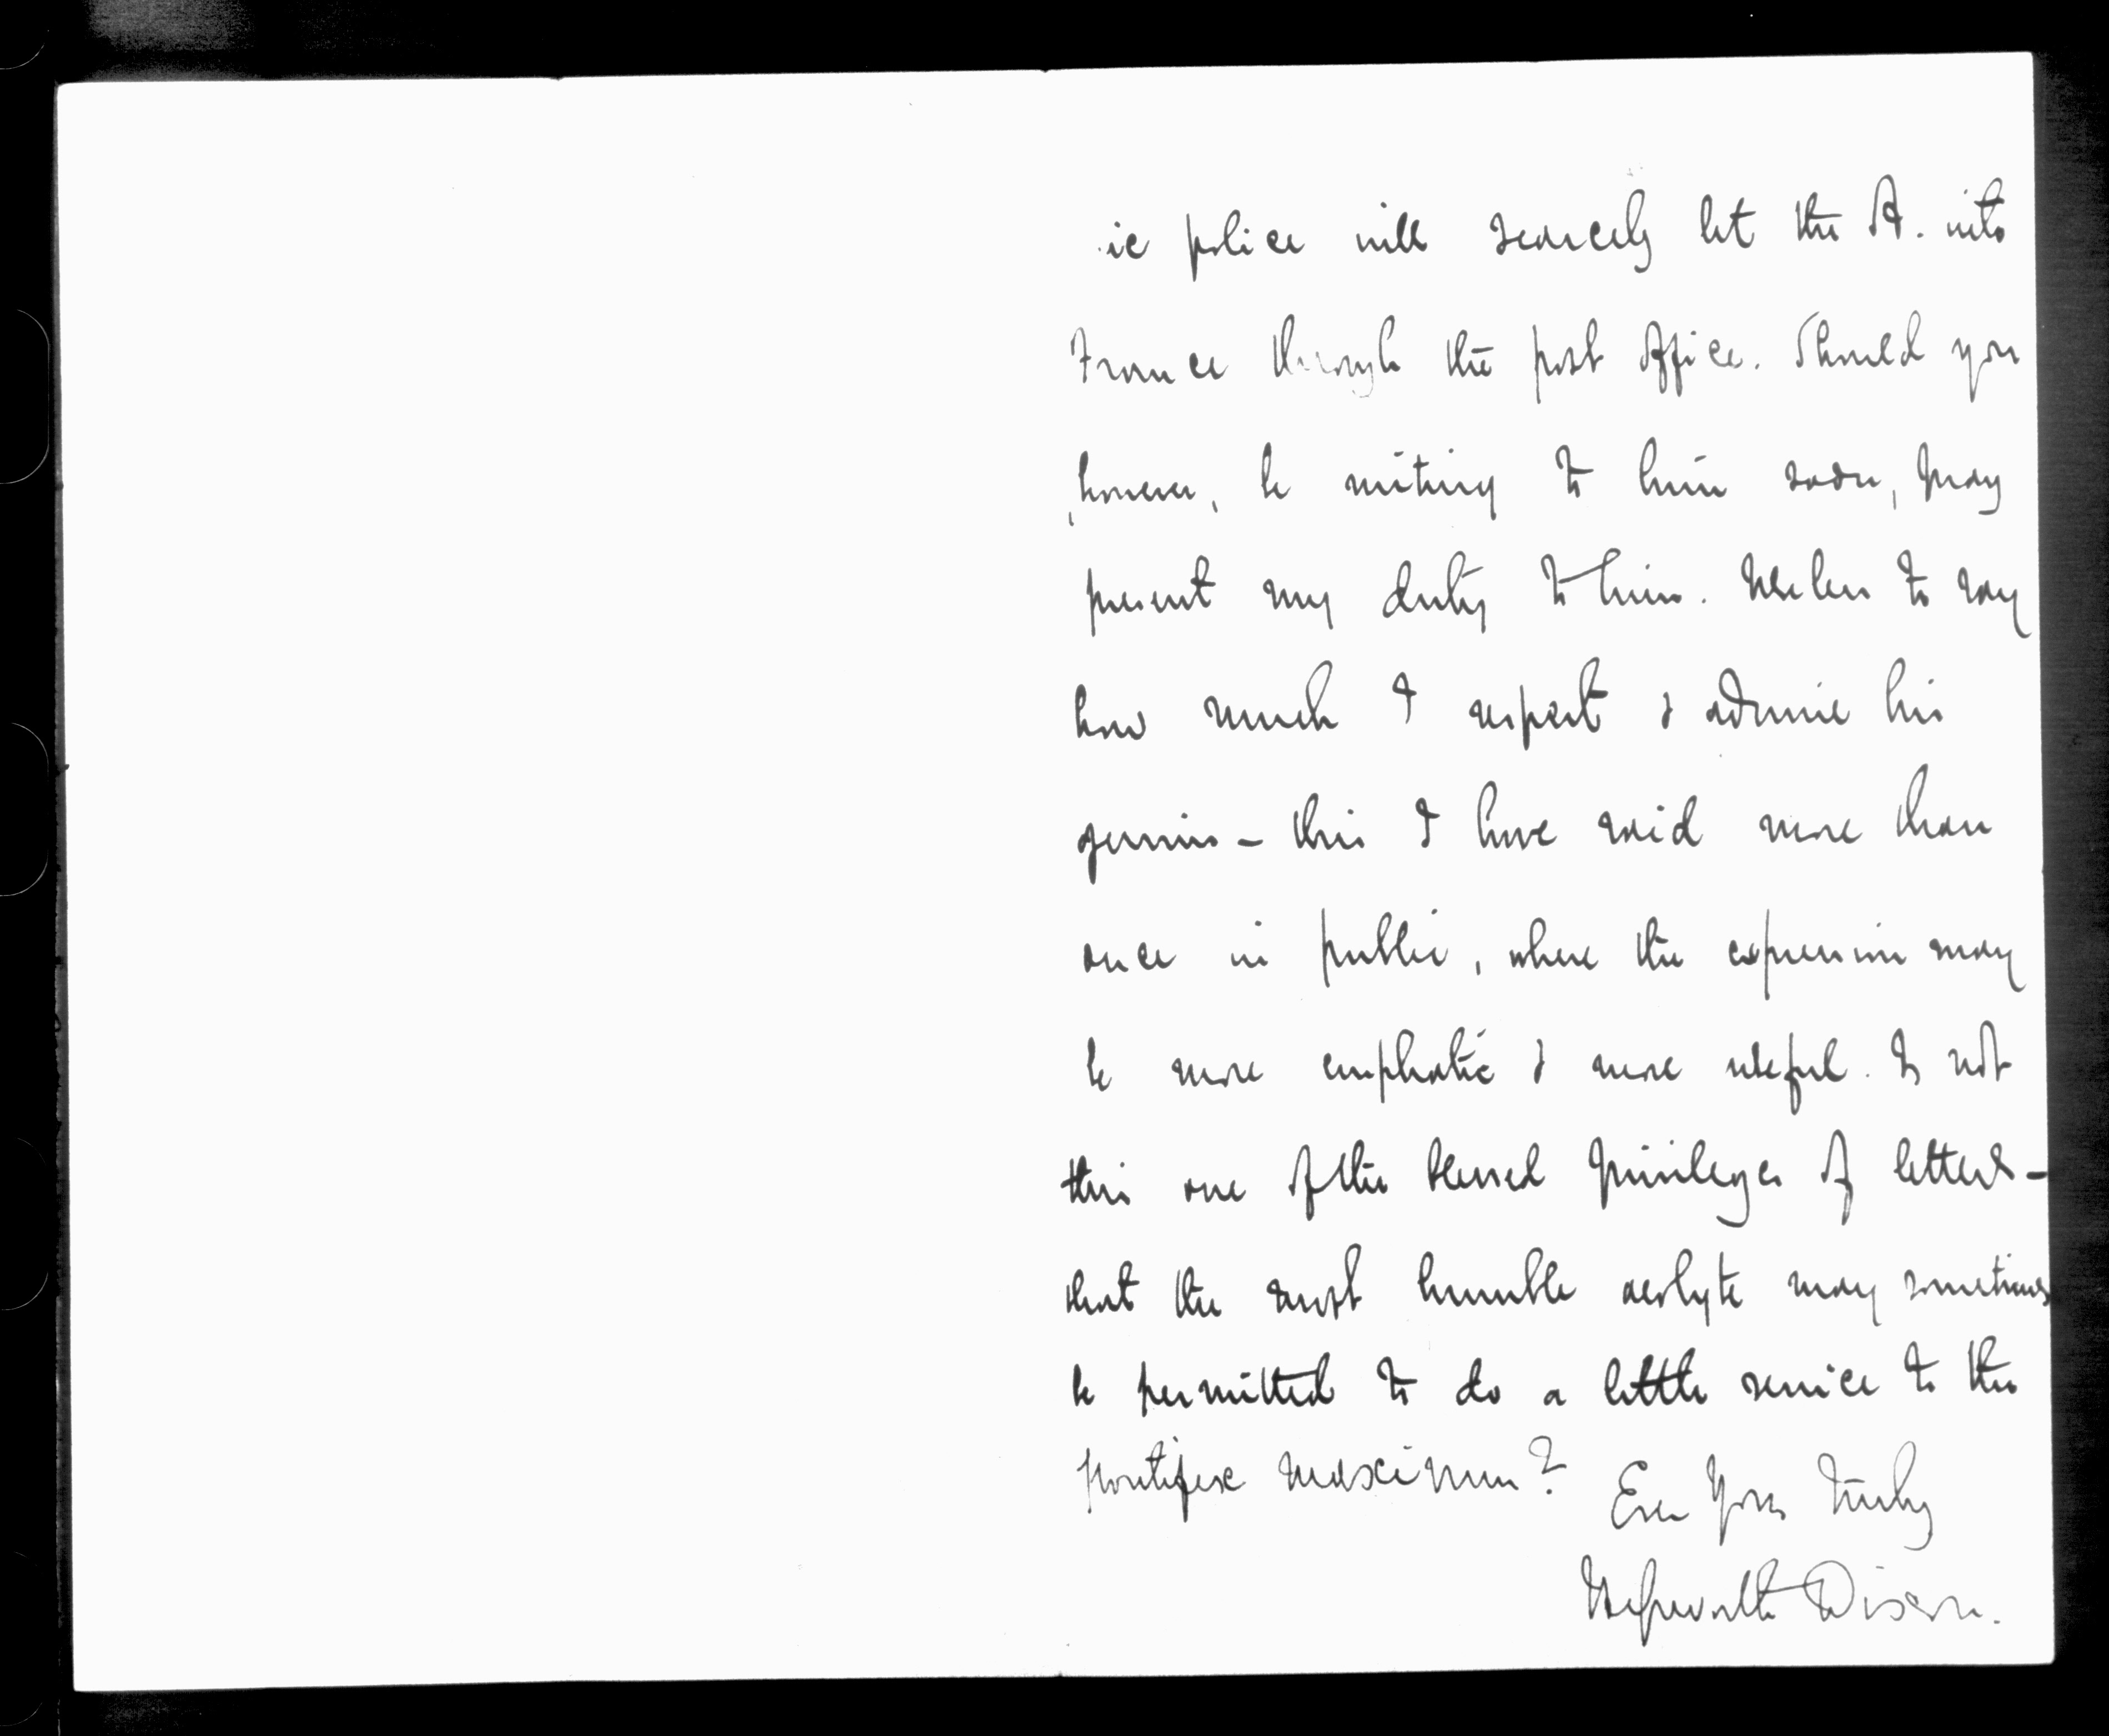 ic police will scarcely let the A. into
France through the post office. Should you
however, be writing to him soon, pray
present my duty to him. Useless to say
how much I respect & admire his
genius – this I have said more than
once in public, where the expression may
be more emphatic & more useful. Is not
this one of the blessed privileges of letters –
that the most humble acolyte may sometimes
be permitted to do a little service to the
pontifex maximus? Ever Yours Truly
Hepworth Dixon.